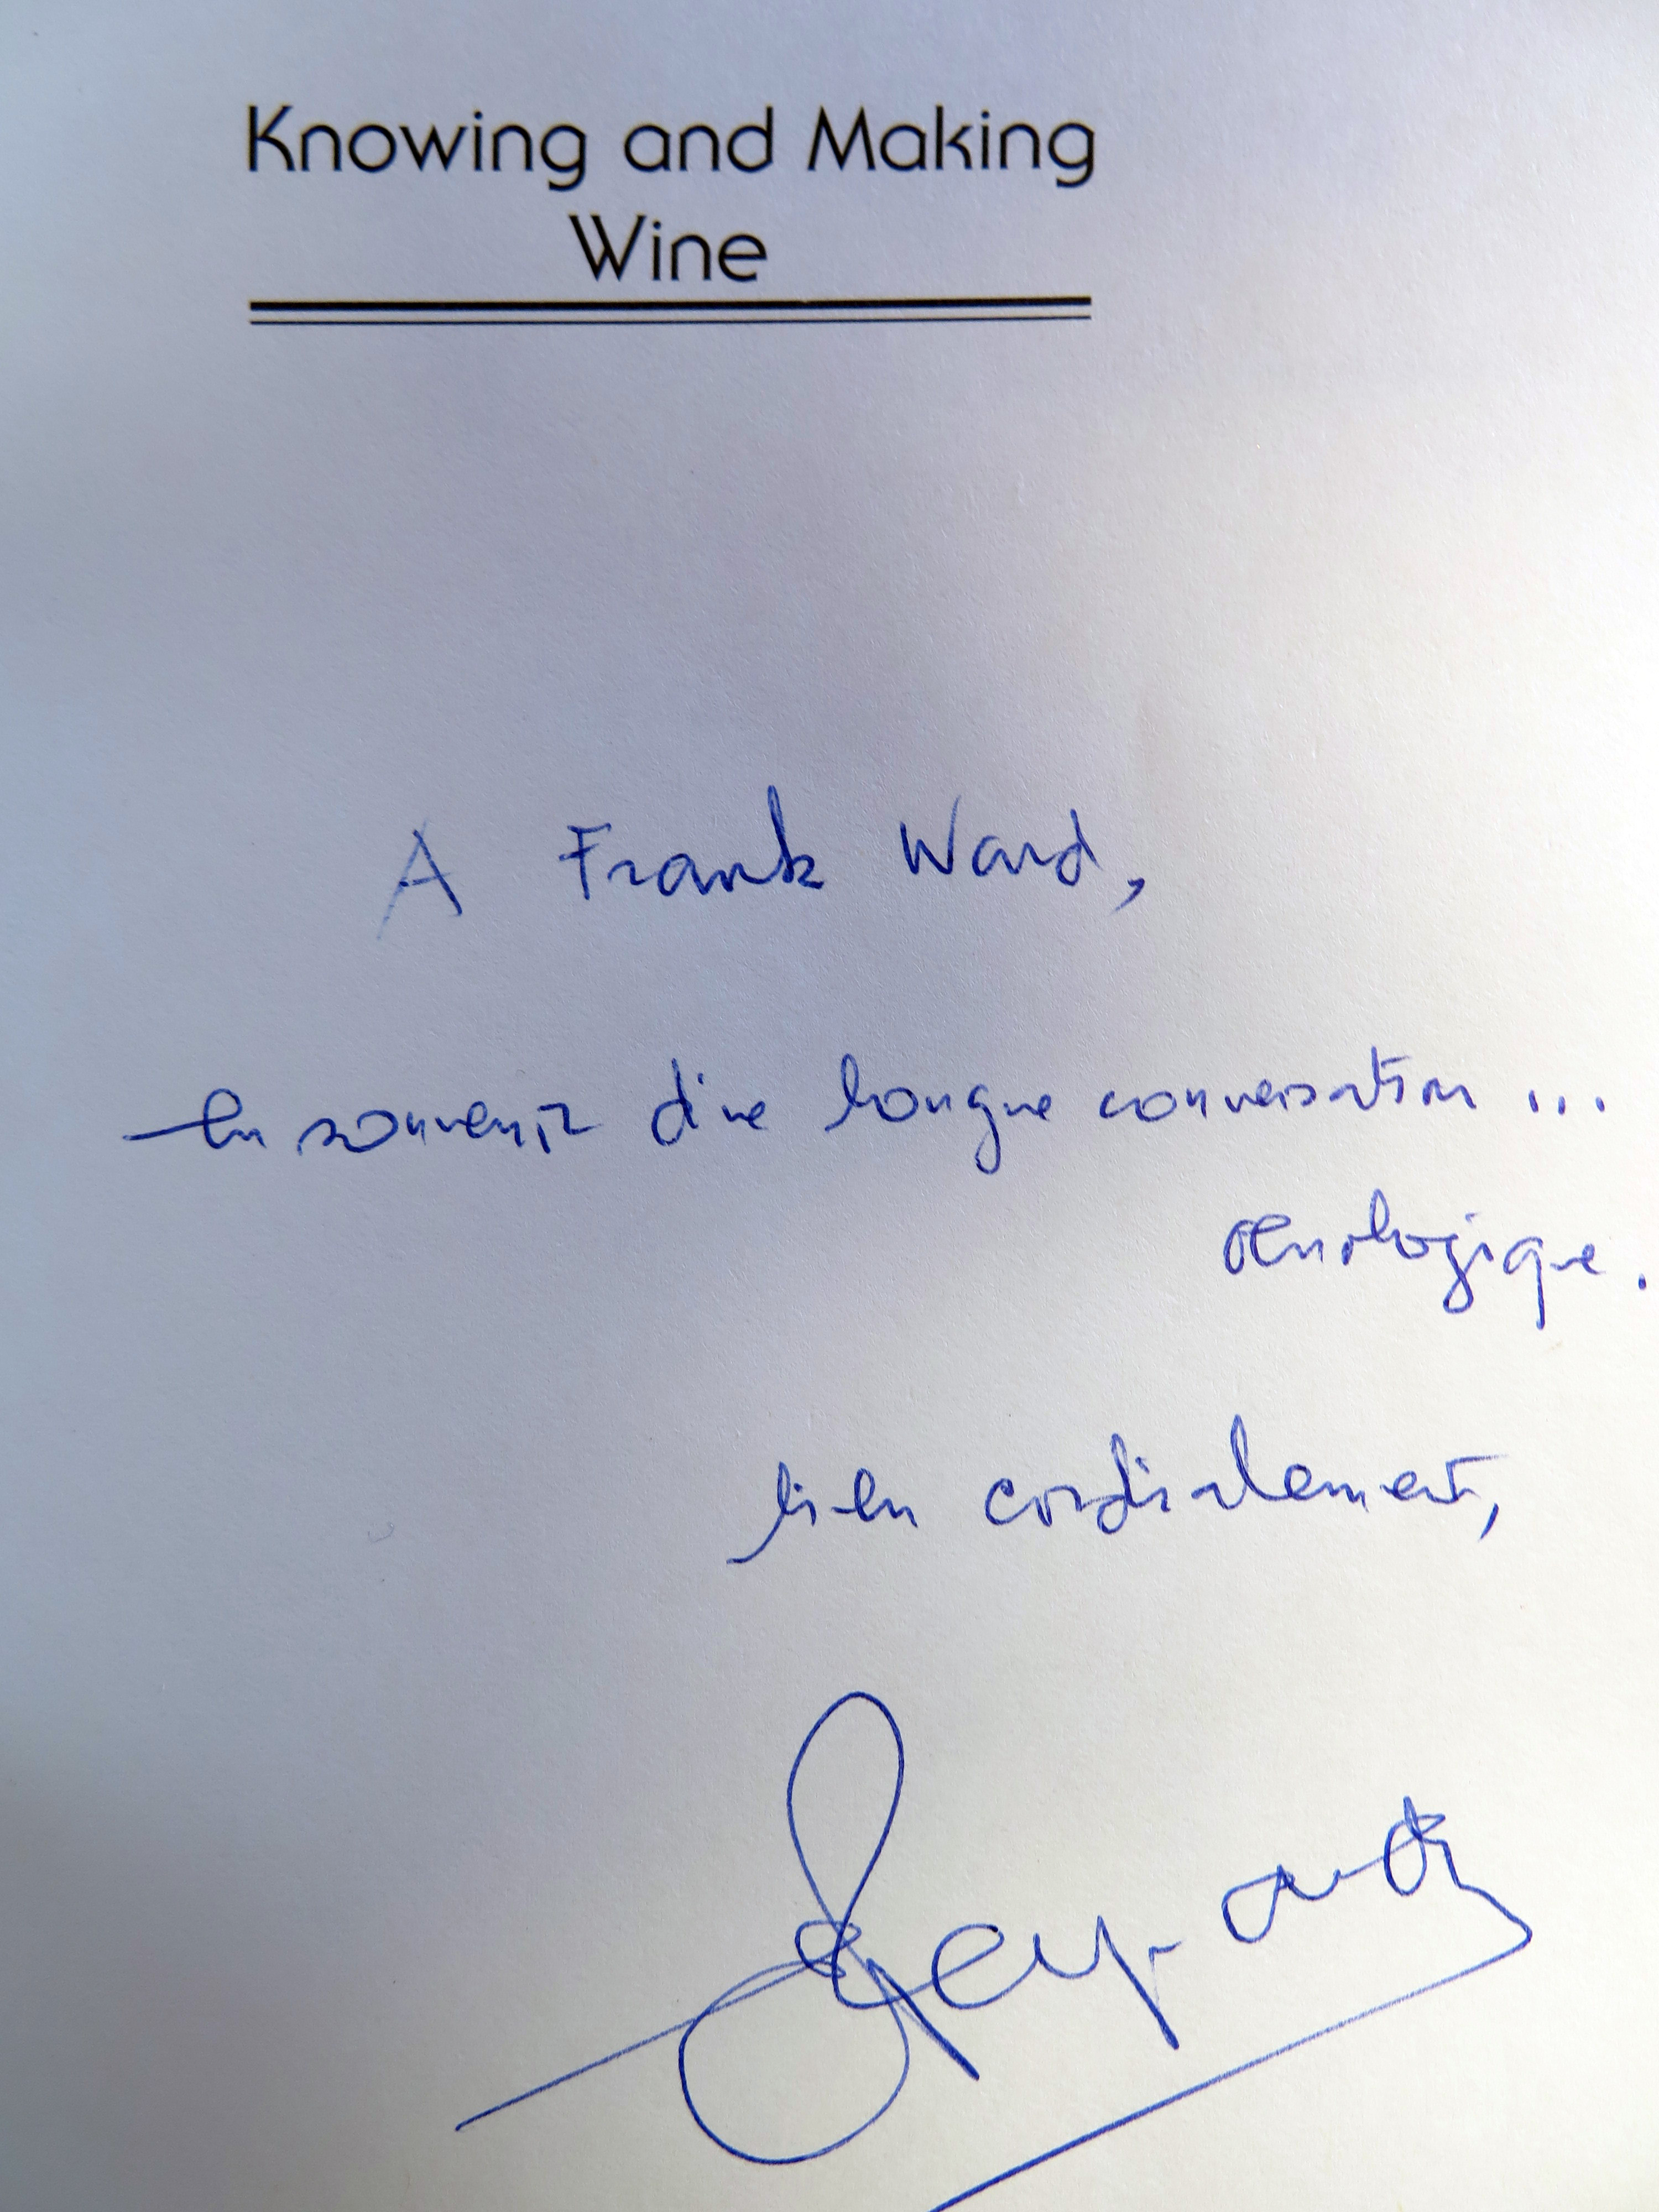 Knowing and Making
Wine
A Frank Ward,
En souvenir d'une longue conversation ...
œnologique.
bien cordialement,
Peynaud